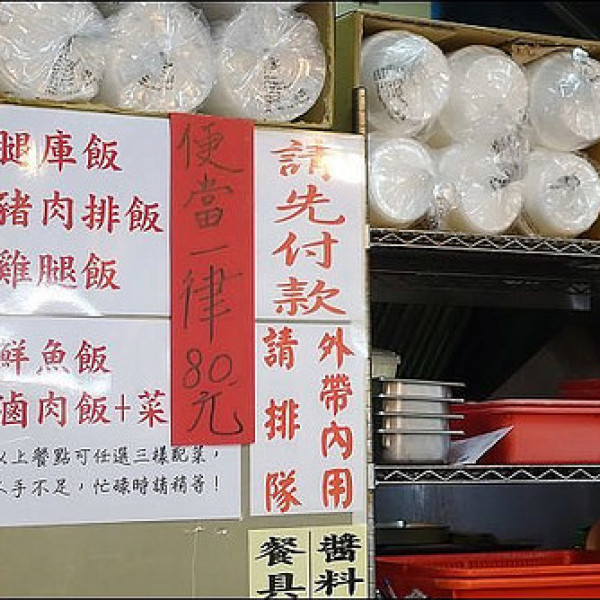 腿庫飯
豬肉排飯
雞腿飯
鮮魚飯
滷肉飯+菜
以上餐點可任選三樣配菜，
人手不足，忙碌時請稍等！
便當一律80元
請先付款
外帶內用
請排隊
醬料
餐具